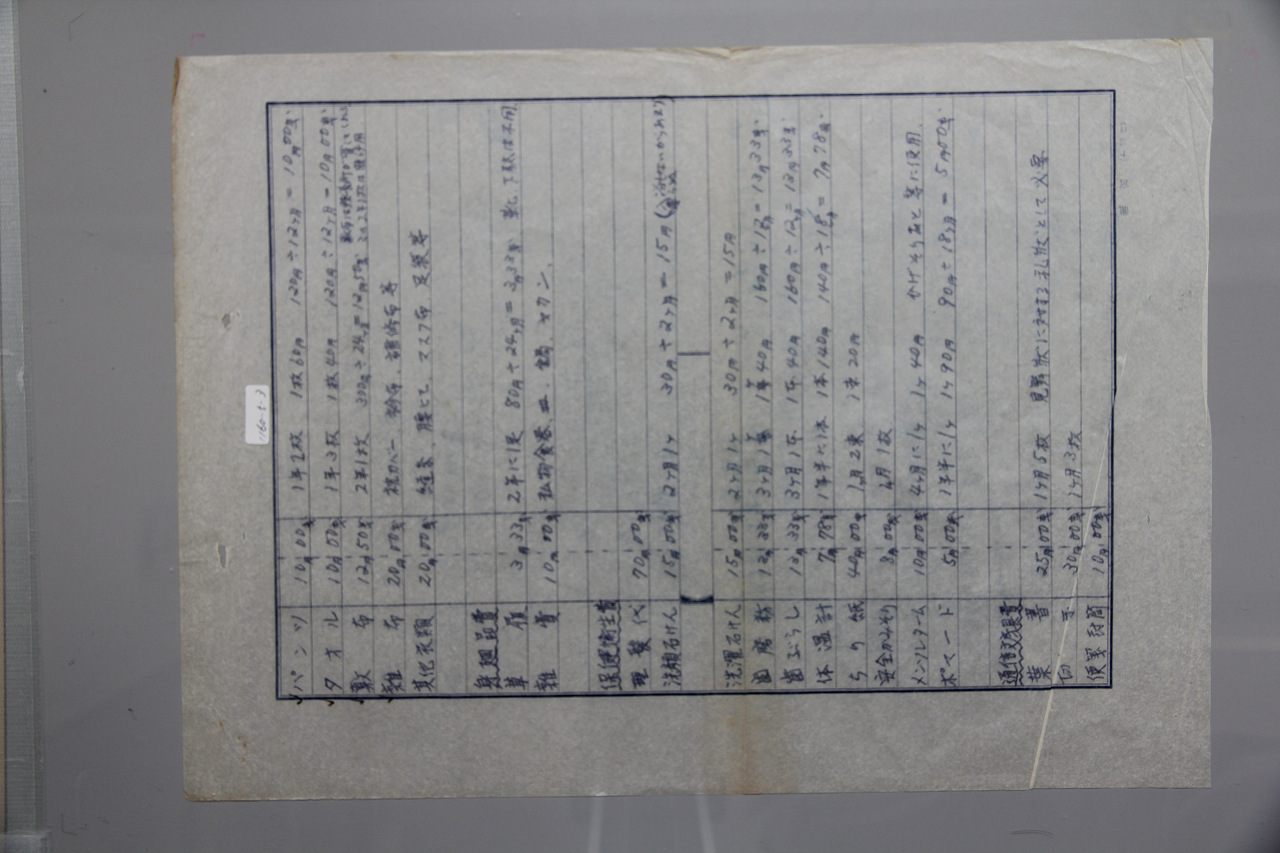 パンツ 10円00銭 1年2枚 1枚60円 120円÷12ヶ月=10円00銭
タオル 10円00銭 1年3枚 1枚40円 120円÷12ヶ月=10円00銭
敷布 12円50銭 2年1枚 300円÷24ヶ月=12円50銭
雑布 20円00銭 枕カバー 補修布等
其他衣類 20円00銭 腰ヒモ マスク布 足袋等
身廻品費
草履 3円33銭 2年に1足 80円÷24ヶ月=3円33銭 靴、下駄は不用
雑費 10円00銭 私物食器、皿、鍋、ヤカン、
保健衛生費
理髪代 70円00銭
洗顔石けん 15円00銭 2ヶ月1ヶ 30円÷2ヶ月=15円
洗濯石けん 15円00銭 2ヶ月1ヶ 30円÷2ヶ月=15円
歯磨粉 13円33銭 3ヶ月1 40円 160円÷12ヶ月=13円33銭
歯ぶらし 13円33銭 3ヶ月1本 1本40円 160円÷12ヶ月=13円33銭
体温計 7円78銭 1年半に1本 1本140円 140円÷18=7円78銭
ちり紙 40円00銭 1月2束 1束20円
安全かみそり 8円00銭 1枚
メンソレターム 10円00銭 4ヶ月に1ヶ 1ヶ40円 かげそりあと等に使用
ポマード 5円00銭 1年半に1ヶ 1ヶ90円 90円÷18ヶ月=5円00銭
通信費
葉書 25円00銭 1ヶ月5枚 見舞状に対する礼状として必要
切手 30円00銭 1ヶ月3枚
便箋封筒 10円00銭
1160-5-3